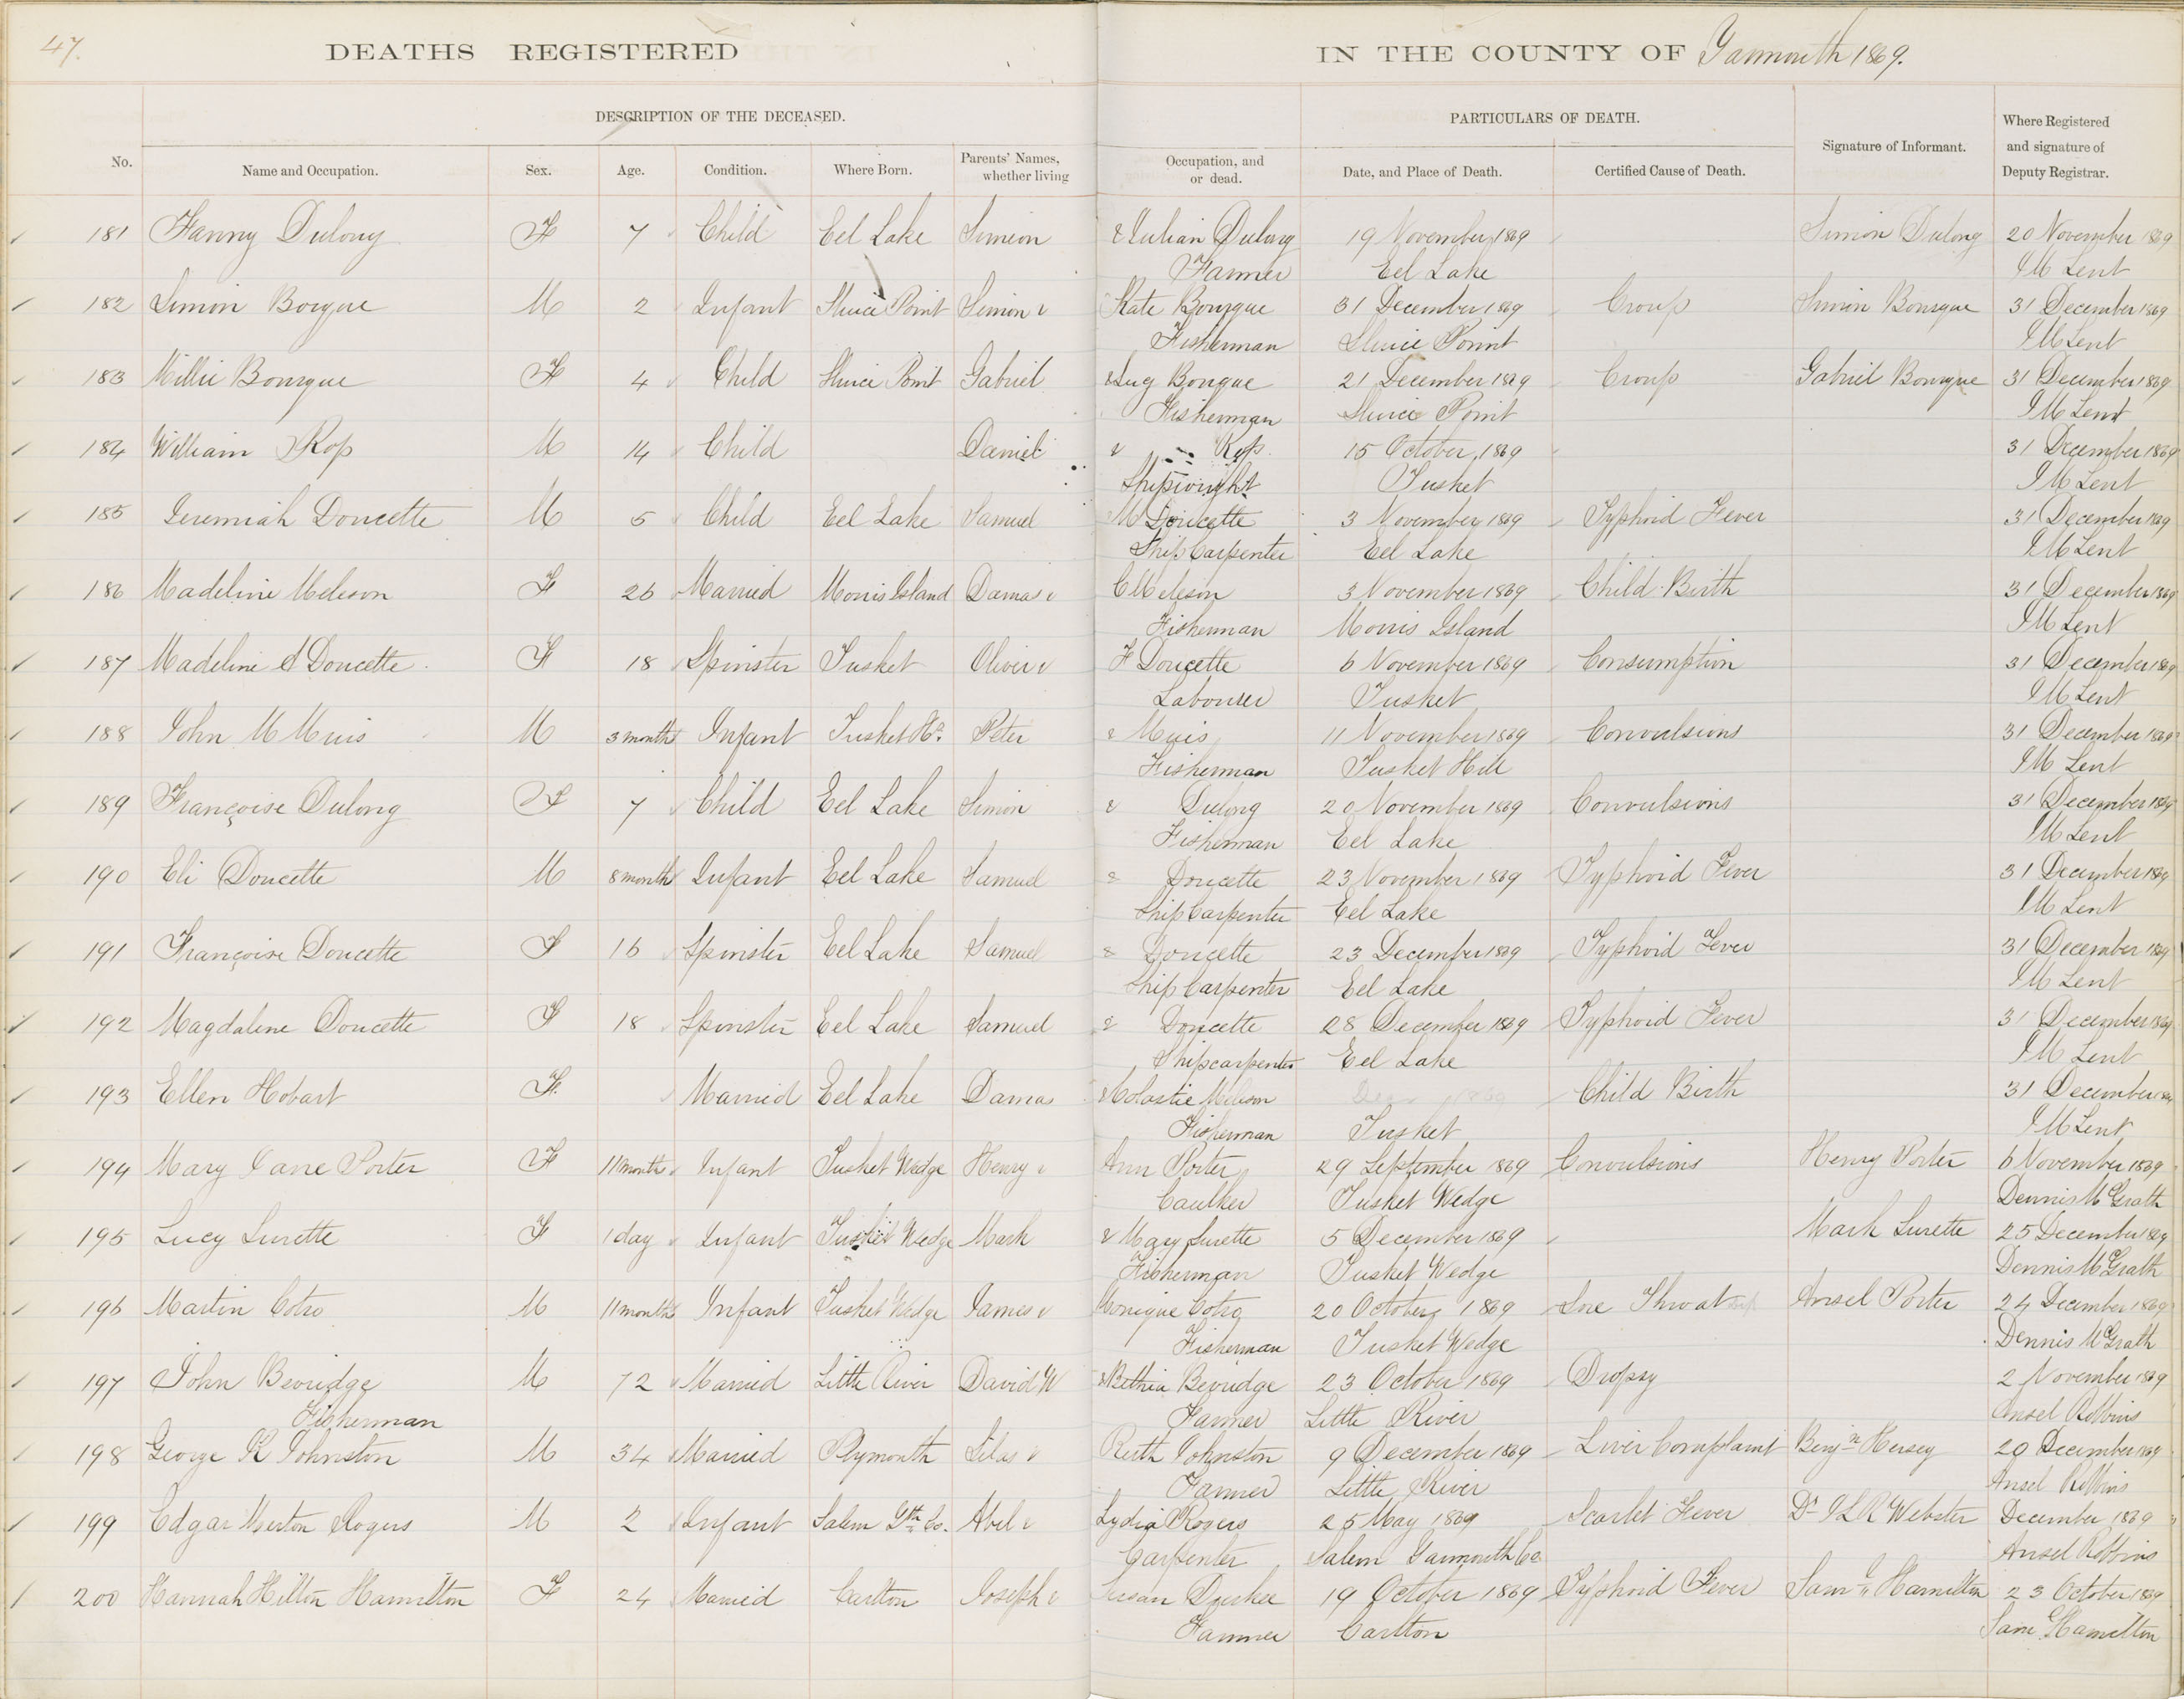 47.
DEATHS REGISTERED IN THE COUNTY OF Yarmouth 1869.
DESCRIPTION OF THE DECEASED. PARTICULARS OF DEATH.
No. Name and Occupation. Sex. Age. Condition. Where Born. Parents' Names, whether living Occupation, and or dead. Date, and Place of Death. Certified Cause of Death. Signature of Informant. Where Registered and signature of Deputy Registrar.
181 Fanny Dulong F 7 Child Eel Lake Simeon & Julian Dulong 19 November 1869 Simon Dulong 20 November 1869
Farmer Eel Lake J M Lent
182 Simon Bourque M 2 Infant Sluice Point Simon & Kate Bourque 31 December 1869 Croup Simon Bourque 31 December 1869
Fisherman Sluice Point J M Lent
183 Millie Bourque F 4 Child Sluice Point Gabriel & Bourque 21 December 1869 Croup Gabriel Bourque 31 December 1869
Fisherman Sluice Point J M Lent
184 William Rop M 14 Child Daniel & Rop 15 October, 1869 31 December 1869
Shipwright Tusket J M Lent
185 Jeremiah Doucette M 5 Child Eel Lake Samuel M Doucette 3 November 1869 Typhoid Fever 31 December 1869
Ship Carpenter Eel Lake J M Lent
186 Madeline Meleson F 26 Married Morris Island Damas & C Meleson 3 November 1869 Child Birth 31 December 1869
Fisherman Morris Island J M Lent
187 Madeline S Doucette F 18 Spinster Tusket Oliver & F Doucette 6 November 1869 Consumption 31 December 1869
Labourer Tusket J M Lent
188 John M Muis M 3 months Infant Tusket Hl. Peter & Muis 11 November 1869 Convulsions 31 December 1869
Fisherman Tusket Hill J M Lent
189 Françoise Dulong F 7 Child Eel Lake Simon & Dulong 20 November 1869 Convulsions 31 December 1869
Fisherman Eel Lake J M Lent
190 Eli Doucette M 8 months Infant Eel Lake Samuel & Doucette 23 November 1869 Typhoid Fever 31 December 1869
Ship Carpenter Eel Lake J M Lent
191 Françoise Doucette F 16 Spinster Eel Lake Samuel & Doucette 23 December 1869 Typhoid Fever 31 December 1869
Ship Carpenter Eel Lake J M Lent
192 Magdaline Doucette F 18 Spinster Eel Lake Samuel & Doucette 28 December 1869 Typhoid Fever 31 December 1869
Shipcarpenter Eel Lake J M Lent
193 Ellen Hobart F. Married Eel Lake Damas & Meleson 1869 Child Birth 31 December 1869
Fisherman Tusket J M Lent
194 Mary Jane Porter F 11 months Infant Tusket Wedge Henry & Ann Porter 29 September 1869 Convulsions Henry Porter 6 November 1869
Caulker Tusket Wedge Dennis McGrath
195 Lucy Surette F 1 day Infant Tusket Wedge Mark & Mary Surette 5 December 1869 Mark Surette 25 December 1869
Fisherman Tusket Wedge Dennis McGrath
196 Martin Cotro M 11 months Infant Tusket Wedge James & Monique Cotro 20 October 1869 Sore Throat Ansel Porter 24 December 1869
Fisherman Tusket Wedge Dennis McGrath
197 John Beveridge M 72 Married Little River David W & Bethia Beveridge 23 October 1869 Dropsy 2 November 1869
Fisherman Farmer Little River Ansel Robbins
198 George R Johnston M 34 Married Plymouth Silas & Ruth Johnston 9 December 1869 Liver Complaint Benjn Hersey 20 December 1869
Farmer Little River Ansel Robbins
199 Edgar Merton Rogers M 2 Infant Salem Yth Co. Abel & Lydia Rogers 25 May 1869 Scarlet Fever Dr J L R Webster December 1869
Carpenter Salem Yarmouth Co Ansel Robbins
200 Hannah Hilton Hamilton F 24 Married Carlton Joseph & Susan Durkee 19 October 1869 Typhoid Fever Saml. Hamilton 23 October 1869
Farmer Carlton Sam G Hamilton